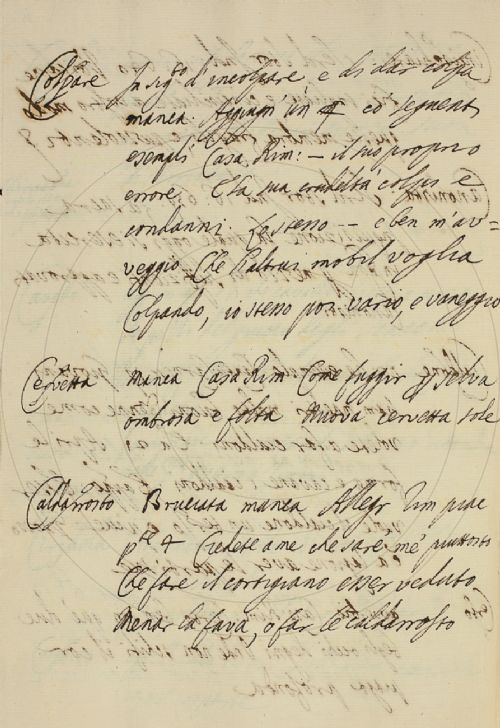 Colpare In sig.to d'incolpare, e di dar colpa
manca. Aggiugn' un § co' seguenti
esempli Casa Rim: – il suo proprio
errore, E la sua crudeltà colpi e
condanni. Lo stesso -- e ben m'av=
veggio Che l'altrui mobil voglia
Colpando, io stesso poi vario, e vaneggio
Cervetta manca Casa Rim Come fuggir p selva
ombrosa e folta Nuova cervetta sole
Caldarrosto Bruciata manca Allegr Rim piac
p.te 4 Credete a me che sare' me' piuttosto
Che fare il cortigiano esser veduto
Menar la fava, o far le caldarrosto